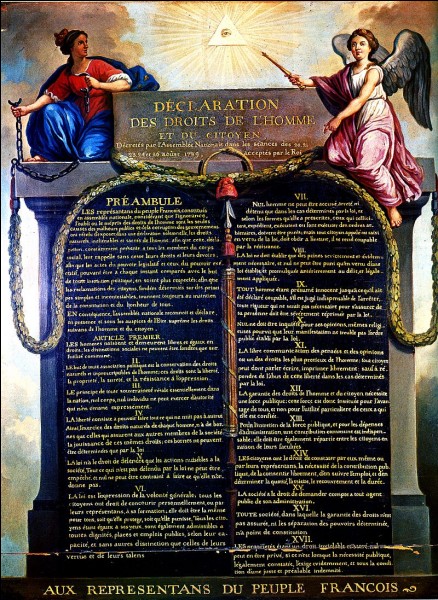 DÉCLARATION
DES DROITS DE L'HOMME
ET DU CITOYEN
Décretés par l'Assemblée Nationale dans les séances des 20, 21
23, 24 et 26 aoust 1789, acceptés par le Roi
PRÉAMBULE
LES représentans du peuple François, constitués
en assemblée nationale, considérant que l'ignorance,
l'oubli ou le mépris des droits de l'homme sont les seules
causes des malheurs publics et de la corruption des gouvernemens
ont résolu d'exposer dans une déclaration solemnelle, les droits
naturels, inaliénables et sacrés de l'homme; afin que cette décla-
ration, constamment présente à tous les membres du corps
social, leur rappelle sans cesse leurs droits et leurs devoirs;
afin que les actes du pouvoir législatif et ceux du pouvoir exé-
cutif, pouvant être à chaque instant comparés avec le but
de toute institution politique, en soient plus respectés; afin que
les réclamations des citoyens, fondées désormais sur des principes
simples et incontestables, tournent toujours au maintien
de la constitution et du bonheur de tous.
EN conséquence, l'assemblée nationale reconnoit et déclare,
en présence et sous les auspices de l'Etre suprême les droits
suivans de l'homme et du citoyen.
ARTICLE PREMIER.
LES hommes naissent et demeurent libres et égaux en
droits, les distinctions sociales ne peuvent être fondées que sur
l'utilité commune.
II.
LE but de toute association politique est la conservation des droits
naturels et imprescriptibles de l'homme; ces droits sont la liberté,
la propriété, la sureté, et la résistance à l'oppression.
III.
LE principe de toute souveraineté réside essentiellement dans
la nation, nul corps, nul individu ne peut exercer d'autorité
qui n'en émane expressément.
IV.
LA liberté consiste à pouvoir faire tout ce qui ne nuit pas à autrui
Ainsi, l'exercice des droits naturels de chaque homme, n'a de bor-
nes que celles qui assurent aux autres membres de la société
la jouissance de ces mêmes droits; ces bornes ne peuvent
être déterminées que par la loi
V.
LA loi n'a le droit de défendre que les actions nuisibles à la
société. Tout ce qui n'est pas défendu par la loi ne peut être
empêché, et nul ne peut être contraint à faire ce qu'elle n'or-
donne pas.
VI.
LA loi est l'expression de la volonté générale; tous les
citoyens ont droit de concourir personnellement, ou par
leurs représentans, à sa formation; elle doit être la même
pour tous, soit qu'elle protege, soit qu'elle punisse. Tous les cito-
yens étant égaux à ses yeux, sont également admissibles à
toutes dignités, places et emplois publics, selon leur ca-
pacité, et sans autres distinction que celles de leurs
vertus et de leurs talens
VII.
NUL homme ne peut être accusé, arreté, ni
détenu que dans les cas déterminés par la loi, et
selon les formes qu'elle a prescrites, ceux qui sollici-
tent, expédient, exécutent ou font exécuter des ordres ar-
bitraires, doivent être punis; mais tout citoyen appelé ou saisi
en vertu de la loi, doit obéir à l'instant, il se rend coupable
par la résistance.
VIII.
LA loi ne doit établir que des peines strictement et évidem-
ment nécessaires, et nul ne peut être puni qu'en vertu d'une
loi établie et promulguée antérieurement au délit, et légale-
ment appliquée.
IX.
TOUT homme étant présumé innocent jusqu'à ce qu'il ait
été déclaré coupable, s'il est jugé indispensable de l'arrêter,
toute rigueur qui ne serait pas nécessaire pour s'assurer de
sa personne doit être sévèrement réprimée par la loi.
X.
NUL ne doit être inquiété pour ses opinions, mêmes religi-
euses pourvu que leur manifestation ne trouble pas l'ordre
public établi par la loi.
XI.
LA libre communication des pensées et des opinions
est un des droits les plus precieux de l'homme; tout citoyen
peut donc parler, écrire, imprimer librement: sauf à ré-
pondre de l'abus de cette liberté dans les cas déterminés
par la loi.
XII.
LA garantie des droits de l'homme et du citoyen nécessite
une force publique; cette force est donc instituée pour l'avan-
tage de tous, et non pour l'utilité particulière de ceux a qui
elle est confiée.
XIII.
Pour l'entretien de la force publique, et pour les dépenses
d'administration, une contribution commune est indispen-
sable; elle doit être également répartie entre les citoyens en
raison de leurs facultées
XIV.
LES citoyens ont le droit de constater par eux même ou
par leurs représentans, la nécessité de la contribution pub-
lique, de la consentir librement, d'en suivre l'emploi, et d'en
déterminer la quotité, l'assiette, le recouvrement et la durée.
XV.
LA société a le droit de demander compte a tout agent
public de son administration.
XVI.
TOUTE société, dans laquelle la garantie des droits n'est
pas assurée, ni la séparation des pouvoirs déterminée,
n'a point de constitution
XVII.
LES propriétés étant un droit inviolable et sacré, nul ne
peut en être privé, si ce n'est lorsque la nécessité publique,
légalement constatée, l'exige évidemment, et sous la condition
d'une juste et préalable indemnité.
AUX REPRESENTANS DU PEUPLE FRANCOIS